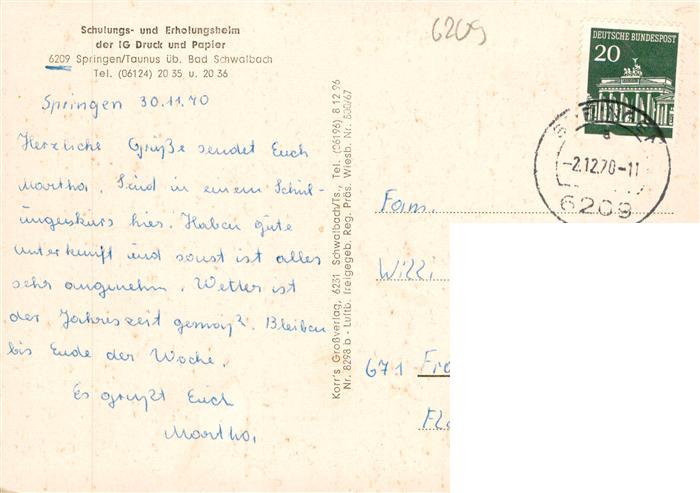 Schulungs- und Erholungsheim
der IG Druck und Papier
6209 Springen/Taunus üb. Bad Schwalbach
Tel. (06124) 20 35 u. 20 36
Springen 30.11.70
Herzliche Grüße sendet Euch
Martha. Sind in einem Schul-
ungskurs hier. Haben gute
Unterkunft und sonst ist alles
sehr angenehm. Wetter ist
der Jahreszeit gemäß. Bleiben
bis Ende der Woche.
Es grüßt Euch
Martha.
Korr's Großverlag, 6231 Schwalbach/Ts., Tel. (06196) 8 12 96
Nr. 8298 b - Luftb. freigegeb. Reg. Präs. Wiesb. Nr. 800/67
6209
DEUTSCHE BUNDESPOST
20
a
-2.12.70-11
6209
Fam.
Willi
671 Fra
Fl